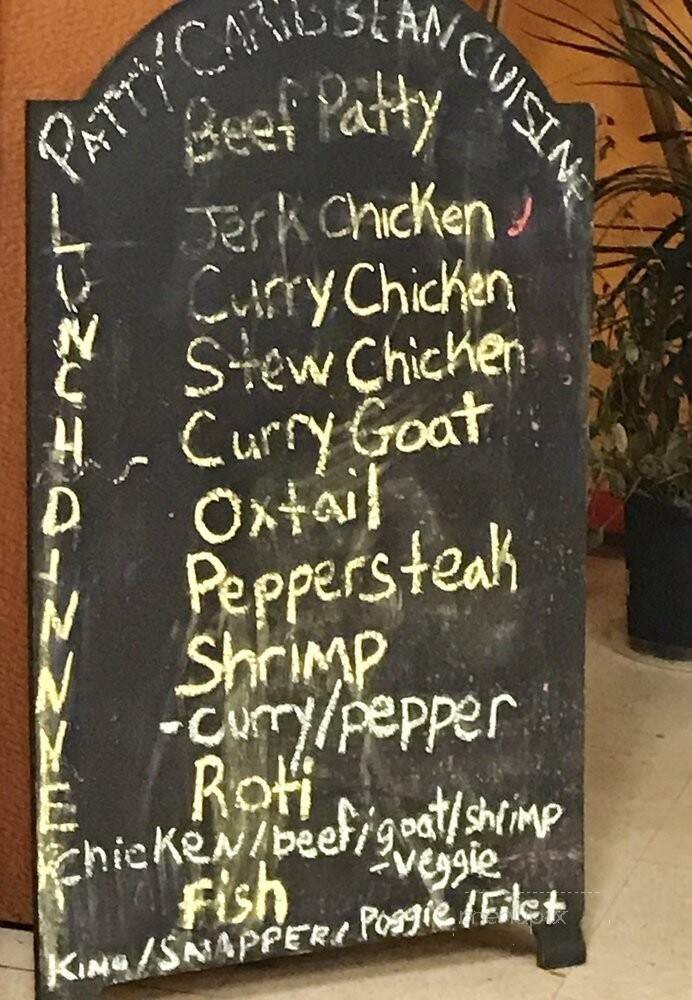 PATTY CARIBBEAN CUISINE
Beef Patty
LUNCH
DINNNNER
Jerk Chicken
Curry Chicken
Stew Chicken
Curry Goat
Oxtail
Peppersteak
Shrimp
-curry/pepper
Roti
Chicken/beef/goat/shrimp
-veggie
Fish
KING/SNAPPER/Poggie/Filet